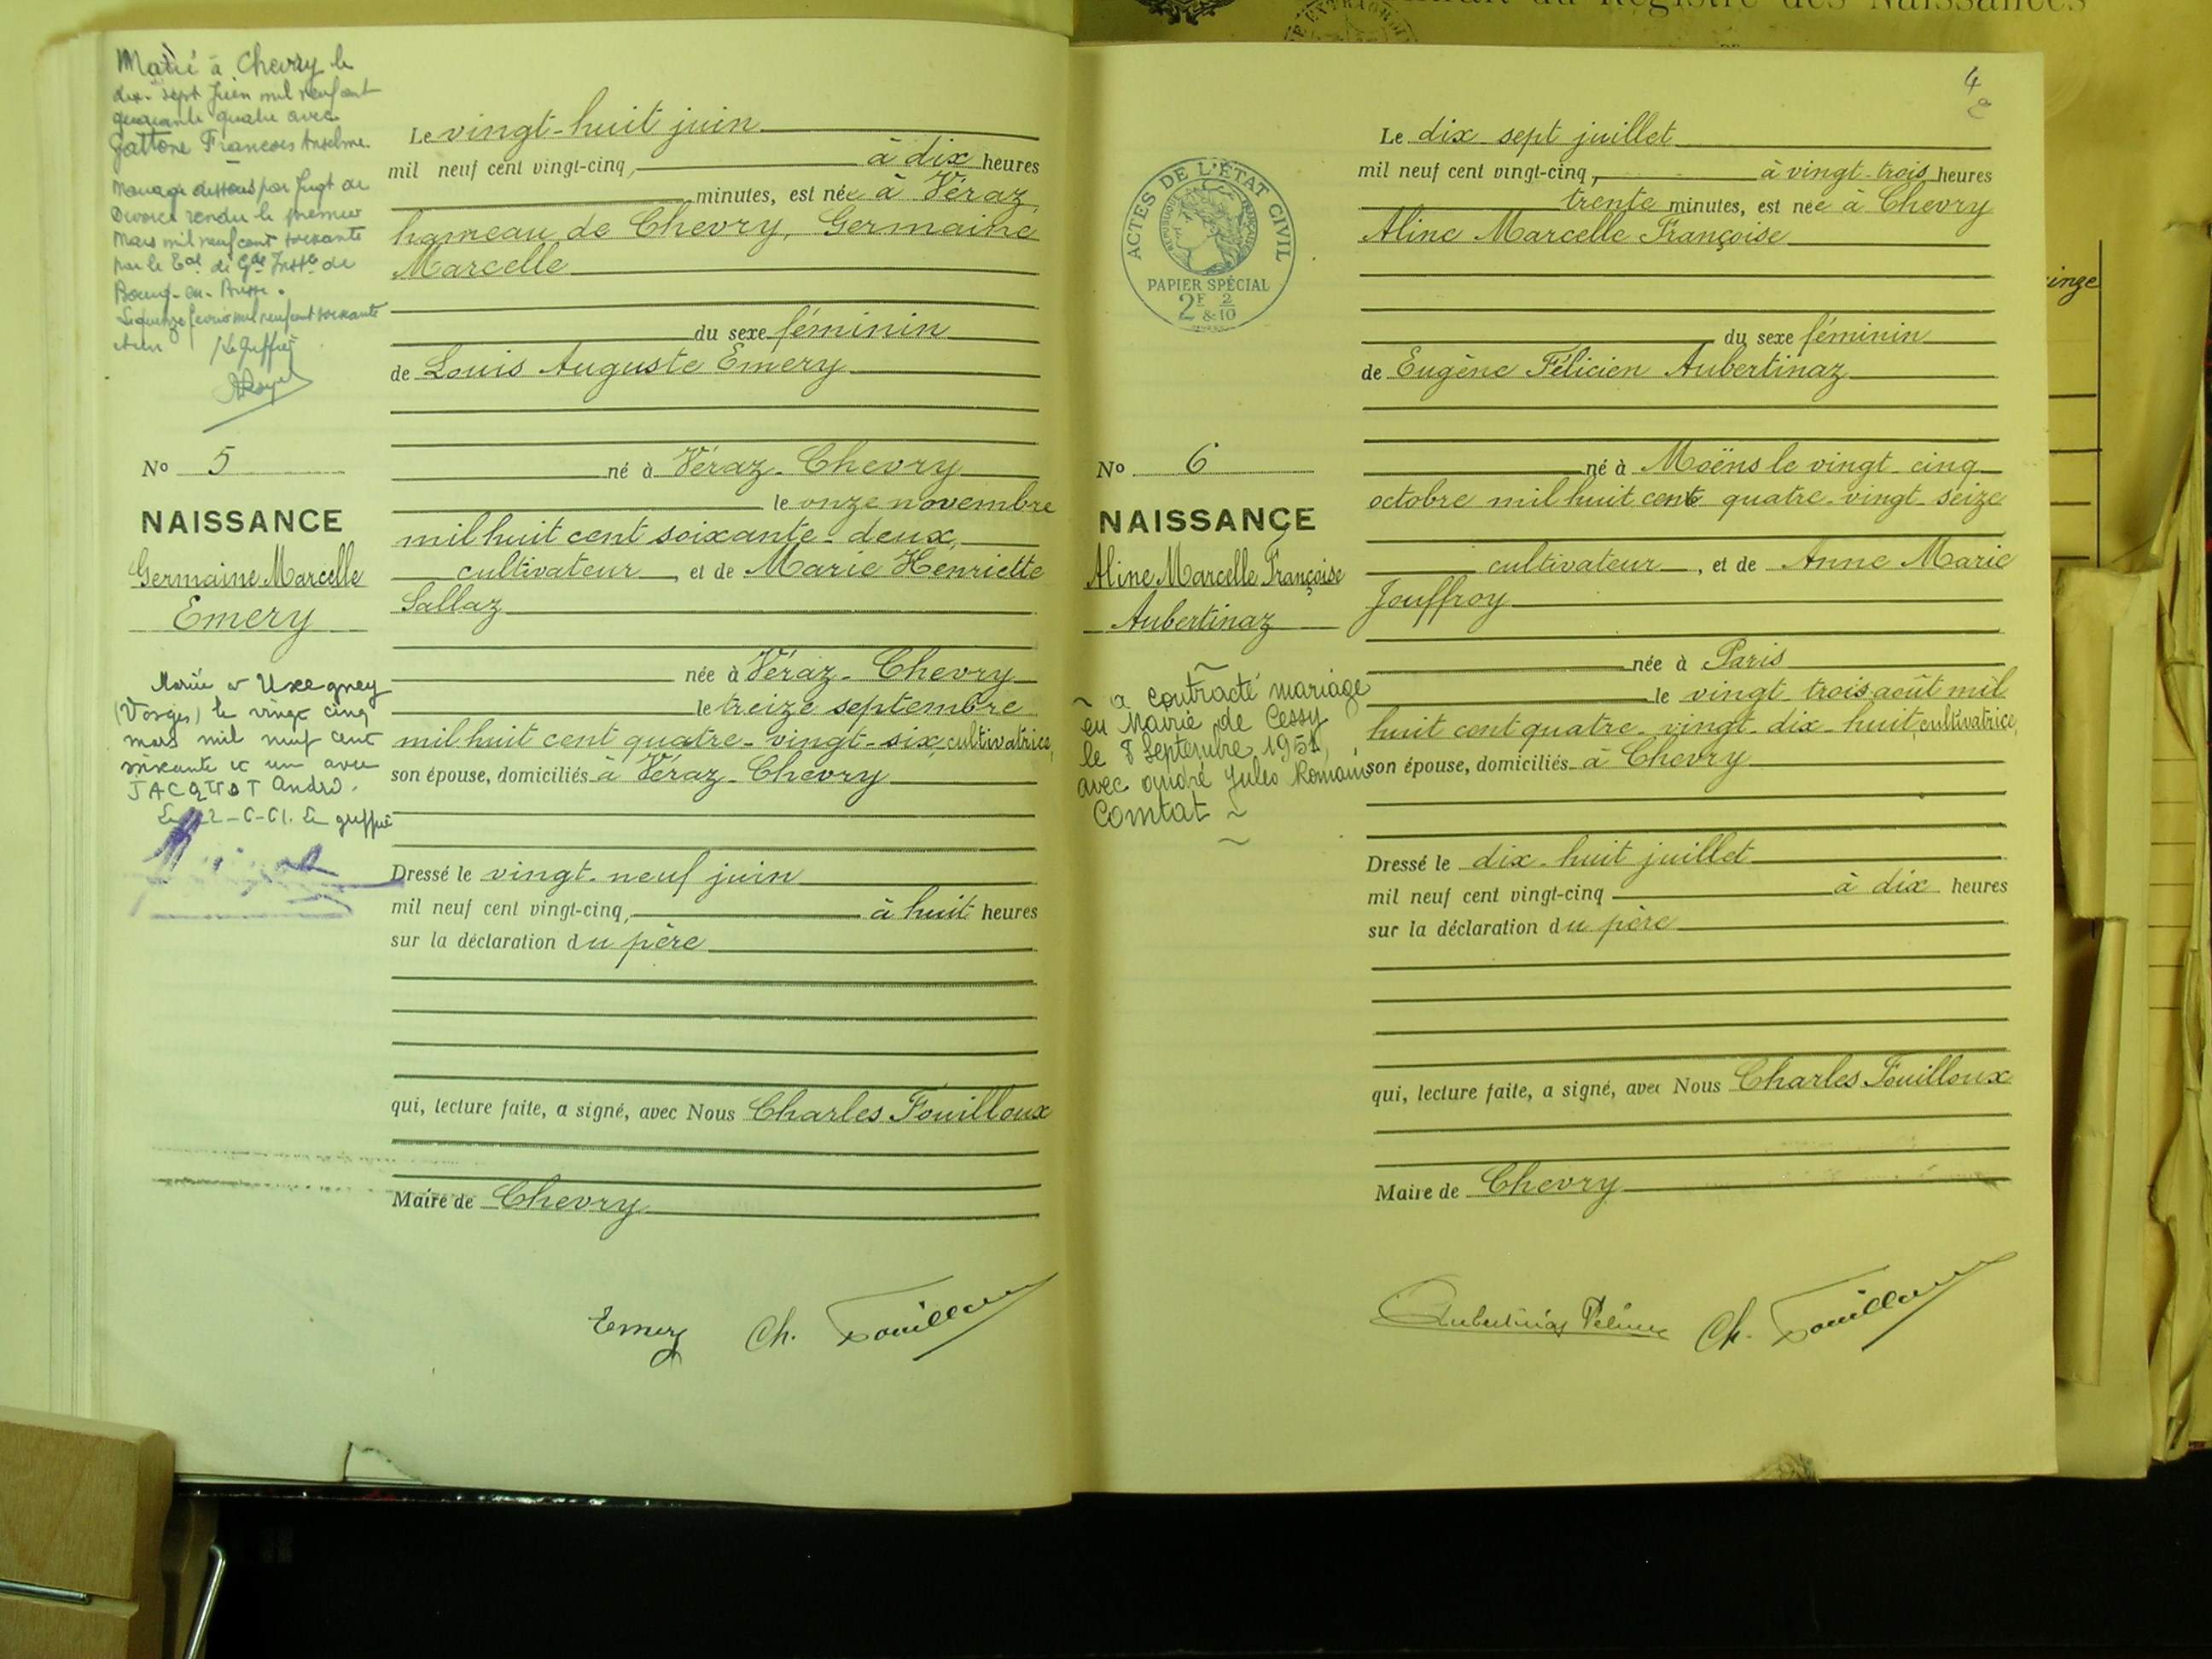 Extrait du Registre des Naissances
Marié à Chevry le
dix-sept Juin mil neuf cent
quarante quatre avec
Gattone Francois Anselme.
Mariage dissous par Jugt de
Divorce rendu le premier
Mars mil neuf cent soixante
par le Tal de Gde Instce de
Bourg-en-Bresse.
Le quinze fevrier mil neuf cent soixante
et un
Le Greffier
No 5
NAISSANCE
Germaine Marcelle
Emery
Mariée à Uxegney
(Vosges) le vingt cinq
mars mil neuf cent
soixante et un avec
JACQUOT André.
Le 22-6-61. Le greffier
Le vingt-huit juin
mil neuf cent vingt-cinq, à dix heures
minutes, est née à Véraz,
hameau de Chevry, Germaine
Marcelle
du sexe féminin
de Louis Auguste Emery
né à Véraz-Chevry
le onze novembre
mil huit cent soixante-deux,
cultivateur, et de Marie Henriette
Sallaz
née à Véraz-Chevry
le treize septembre
mil huit cent quatre-vingt-six, cultivatrice,
son épouse, domiciliés à Véraz-Chevry
Dressé le vingt-neuf juin
mil neuf cent vingt-cinq, à huit heures
sur la déclaration du père
qui, lecture faite, a signé, avec Nous Charles Fouilloux
Maire de Chevry
Emery Ch. Fouilloux
4
ACTES DE L'ÉTAT CIVIL
PAPIER SPÉCIAL
2F 2
& 10
No 6
NAISSANCE
Aline Marcelle Françoise
Aubertinaz
~ a contracté mariage
en Mairie de Cessy
le 8 Septembre 1951,
avec André Jules Romain
Comtat ~
Le dix sept juillet
mil neuf cent vingt-cinq, à vingt-trois heures
trente minutes, est née à Chevry
Aline Marcelle Françoise
du sexe féminin
de Eugène Félicien Aubertinaz
né à Moëns le vingt cinq
octobre mil huit cent quatre-vingt seize
cultivateur, et de Anne Marie
Jouffroy
née à Paris
le vingt trois août mil
huit cent quatre-vingt-dix-huit, cultivatrice,
son épouse, domiciliés à Chevry
Dressé le dix-huit juillet
mil neuf cent vingt-cinq à dix heures
sur la déclaration du père
qui, lecture faite, a signé, avec Nous Charles Fouilloux
Maire de Chevry
Ch. Fouilloux